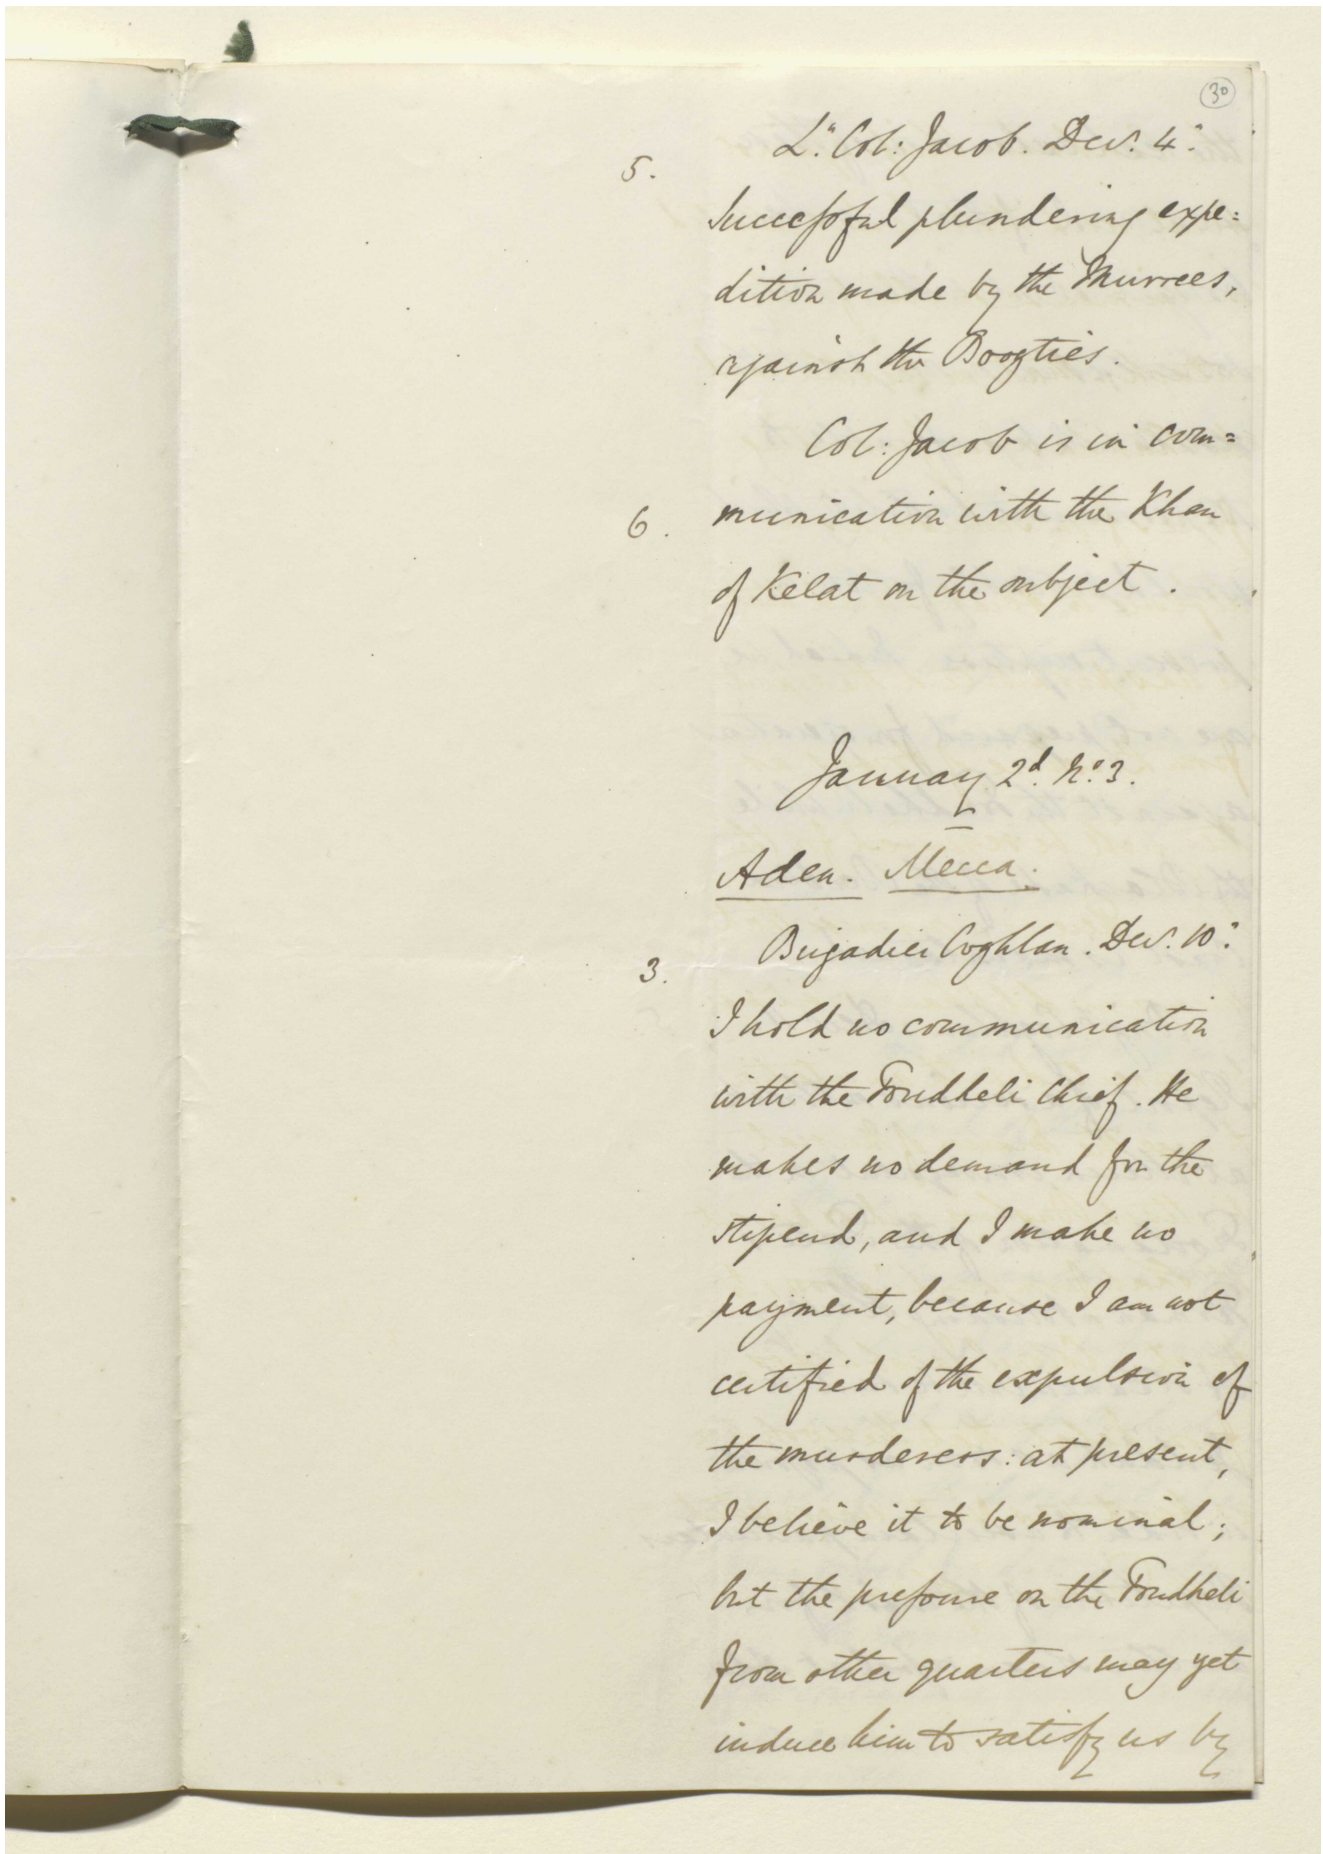 30
Lt. Col: Jacob. Decr. 4.
5.
Successful plundering expe=
dition made by the Murrees,
against the Boogties.
Col: Jacob is in com=
6. munication with the Khan
of Kelat on the subject.
January 2d. No. 3.
Aden. Mecca.
Brigadier Coghlan. Decr. 10.
3.
I hold no communication
with the Foudheli Chief. He
makes no demand for the
stipend, and I make no
payment, because I am not
certified of the expulsion of
the murderers: at present,
I believe it to be nominal;
but the pressure on the Foudheli
from other quarters may yet
induce him to satisfy us by